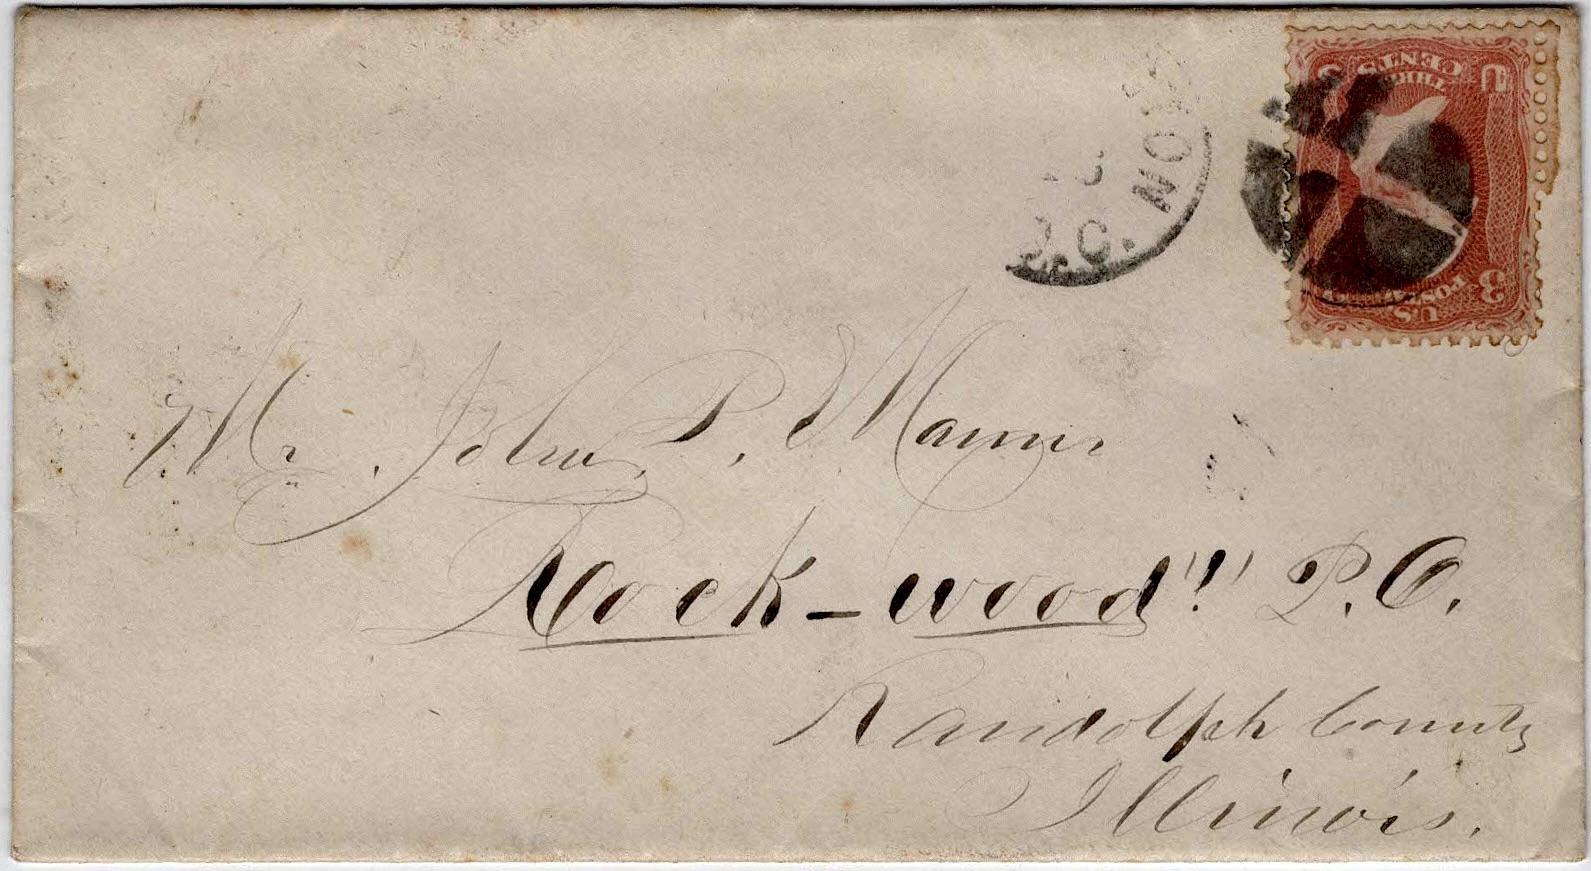 Mr. John P. Mann
Rock-wood"!" P.O.
Randolph County
Illinois.
.C. NOV
U.S. POSTAGE
3
THREE CENTS